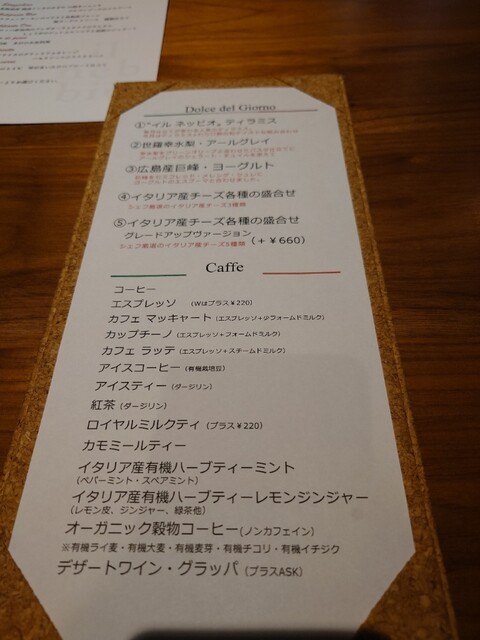 Dolce del Giorno
①"イル ネッビオ。ティラミス
②世羅幸水梨・アールグレイ
③広島産巨峰・ヨーグルト
④イタリア産チーズ各種の盛合せ
シェフ厳選のイタリア産チーズ3種類
⑤イタリア産チーズ各種の盛合せ
グレードアップヴァージョン
シェフ厳選のイタリア産チーズ5種類 (+¥660)
Caffe
コーヒー
エスプレッソ (Wはプラス¥220)
カフェ マッキャート (エスプレッソ+少フォームドミルク)
カップチーノ (エスプレッソ+フォームドミルク)
カフェ ラッテ (エスプレッソ+スチームドミルク)
アイスコーヒー (有機栽培豆)
アイスティー (ダージリン)
紅茶 (ダージリン)
ロイヤルミルクティ (プラス¥220)
カモミールティー
イタリア産有機ハーブティーミント
(ペパーミント・スペアミント)
イタリア産有機ハーブティーレモンジンジャー
(レモン皮、ジンジャー、緑茶他)
オーガニック穀物コーヒー(ノンカフェイン)
※有機ライ麦・有機大麦・有機麦芽・有機チコリ・有機イチジク
デザートワイン・グラッパ (プラスASK)